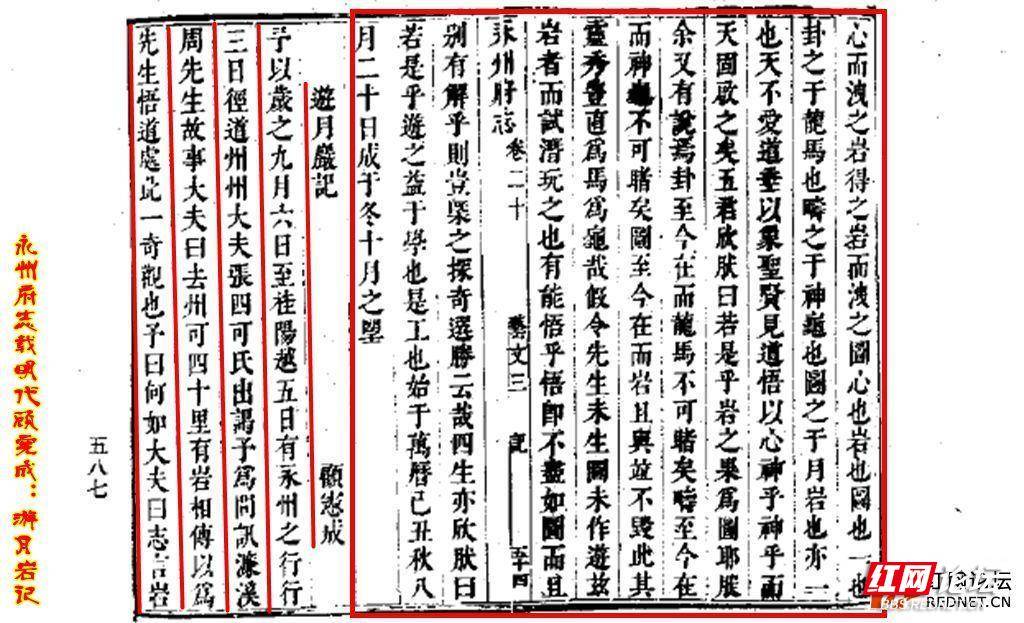 心而洩之岩得之岩而洩之圖心也岩也圖也一也
卦之于龍馬也疇之于神龜也圖之于月岩也亦一
也天不愛道垂以象聖賢見道悟以心神乎神乎而
天固啟之矣五君欣狀曰若是乎岩之果為圖耶
余又有說焉卦至今在而龍馬不可賭矣疇至今在
而神龜不可賭矣圖至今在而岩且與並不毀此其
靈秀豈直為馬為龜哉假令先生未生圖未作遊茲
岩者而試潛玩之也有能悟乎悟即不盡如圖而且
永州府志 卷二十 藝文三 記 五十四
別有解乎則豈槩之探奇選勝云哉四生亦欣狀曰
若是乎遊之益于學也是工也始于萬曆己丑秋八
月二十日成于冬十月之
遊月巖記 顧憲成
予以歲之九月六日至桂陽越五日有永州之行行
三日徑道州州大夫張四可氏出謁予為問訊濂溪
周先生故事大夫曰去州可四十里有岩相傳以為
先生悟道處此一奇觀也予曰何如大夫曰志言岩
五八七
永州府志载明代顾宪成：游月岩记
红网论坛
红网论坛
BBS.REDNET.CN
REDNET.CN